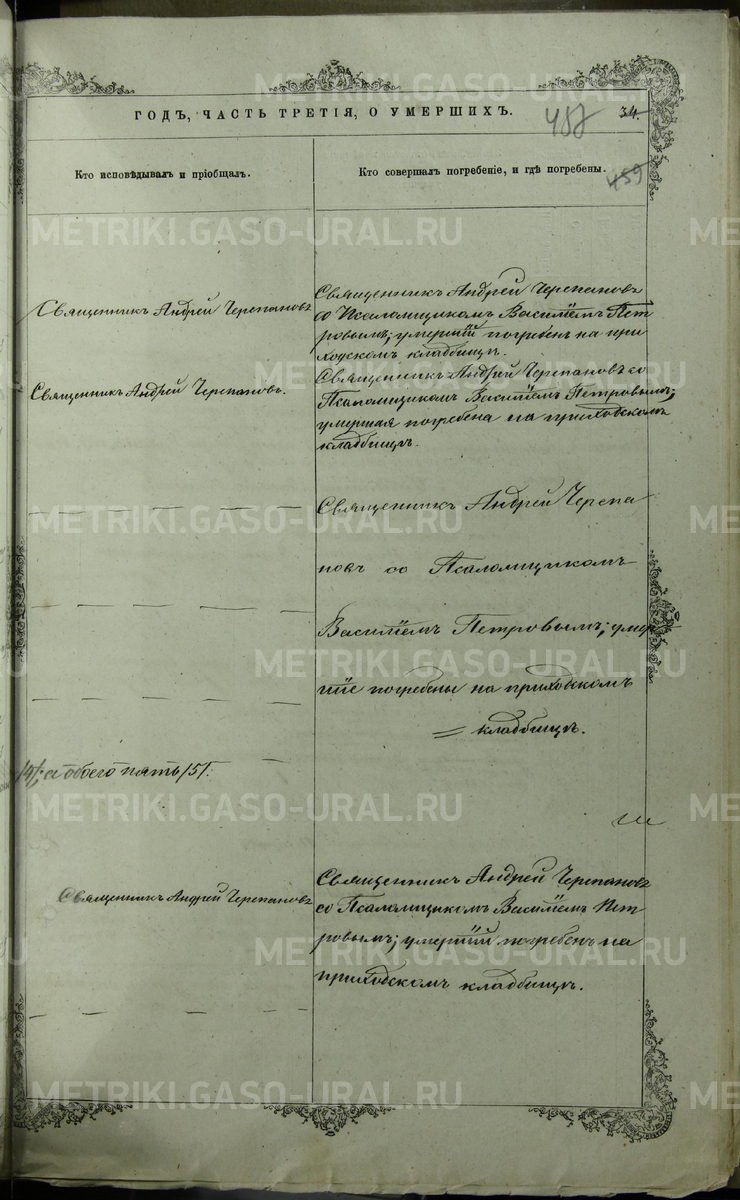 ГОДЪ, ЧАСТЬ ТРЕТІЯ, О УМЕРШИХЪ.
34.
459
Кто исповѣдывалъ и пріобщалъ.
Кто совершалъ погребеніе, и гдѣ погребены.
Священникъ Андрей Черепановъ
Священникъ Андрей Черепановъ
со Псаломщикомъ Василіемъ Пет
ровымъ; умершій погребенъ на при
ходскомъ кладбищѣ.
Священникъ Андрей Черепановъ.
Священникъ Андрей Черепановъ со
Псаломщикомъ Василіемъ Петровымъ;
умершая погребена на приходскомъ
кладбищѣ.
Священникъ Андрей Черепа
новъ со Псаломщикомъ
Василіемъ Петровымъ; умер
шіе погребены на приходскомъ
кладбищѣ.
/4/; а обоего пять /5/.
Священникъ Андрей Черепановъ
Священникъ Андрей Черепановъ
со Псаломщикомъ Василіемъ Пет
ровымъ; умершій погребенъ на
приходскомъ кладбищѣ.
METRIKI.GASO-URAL.RU